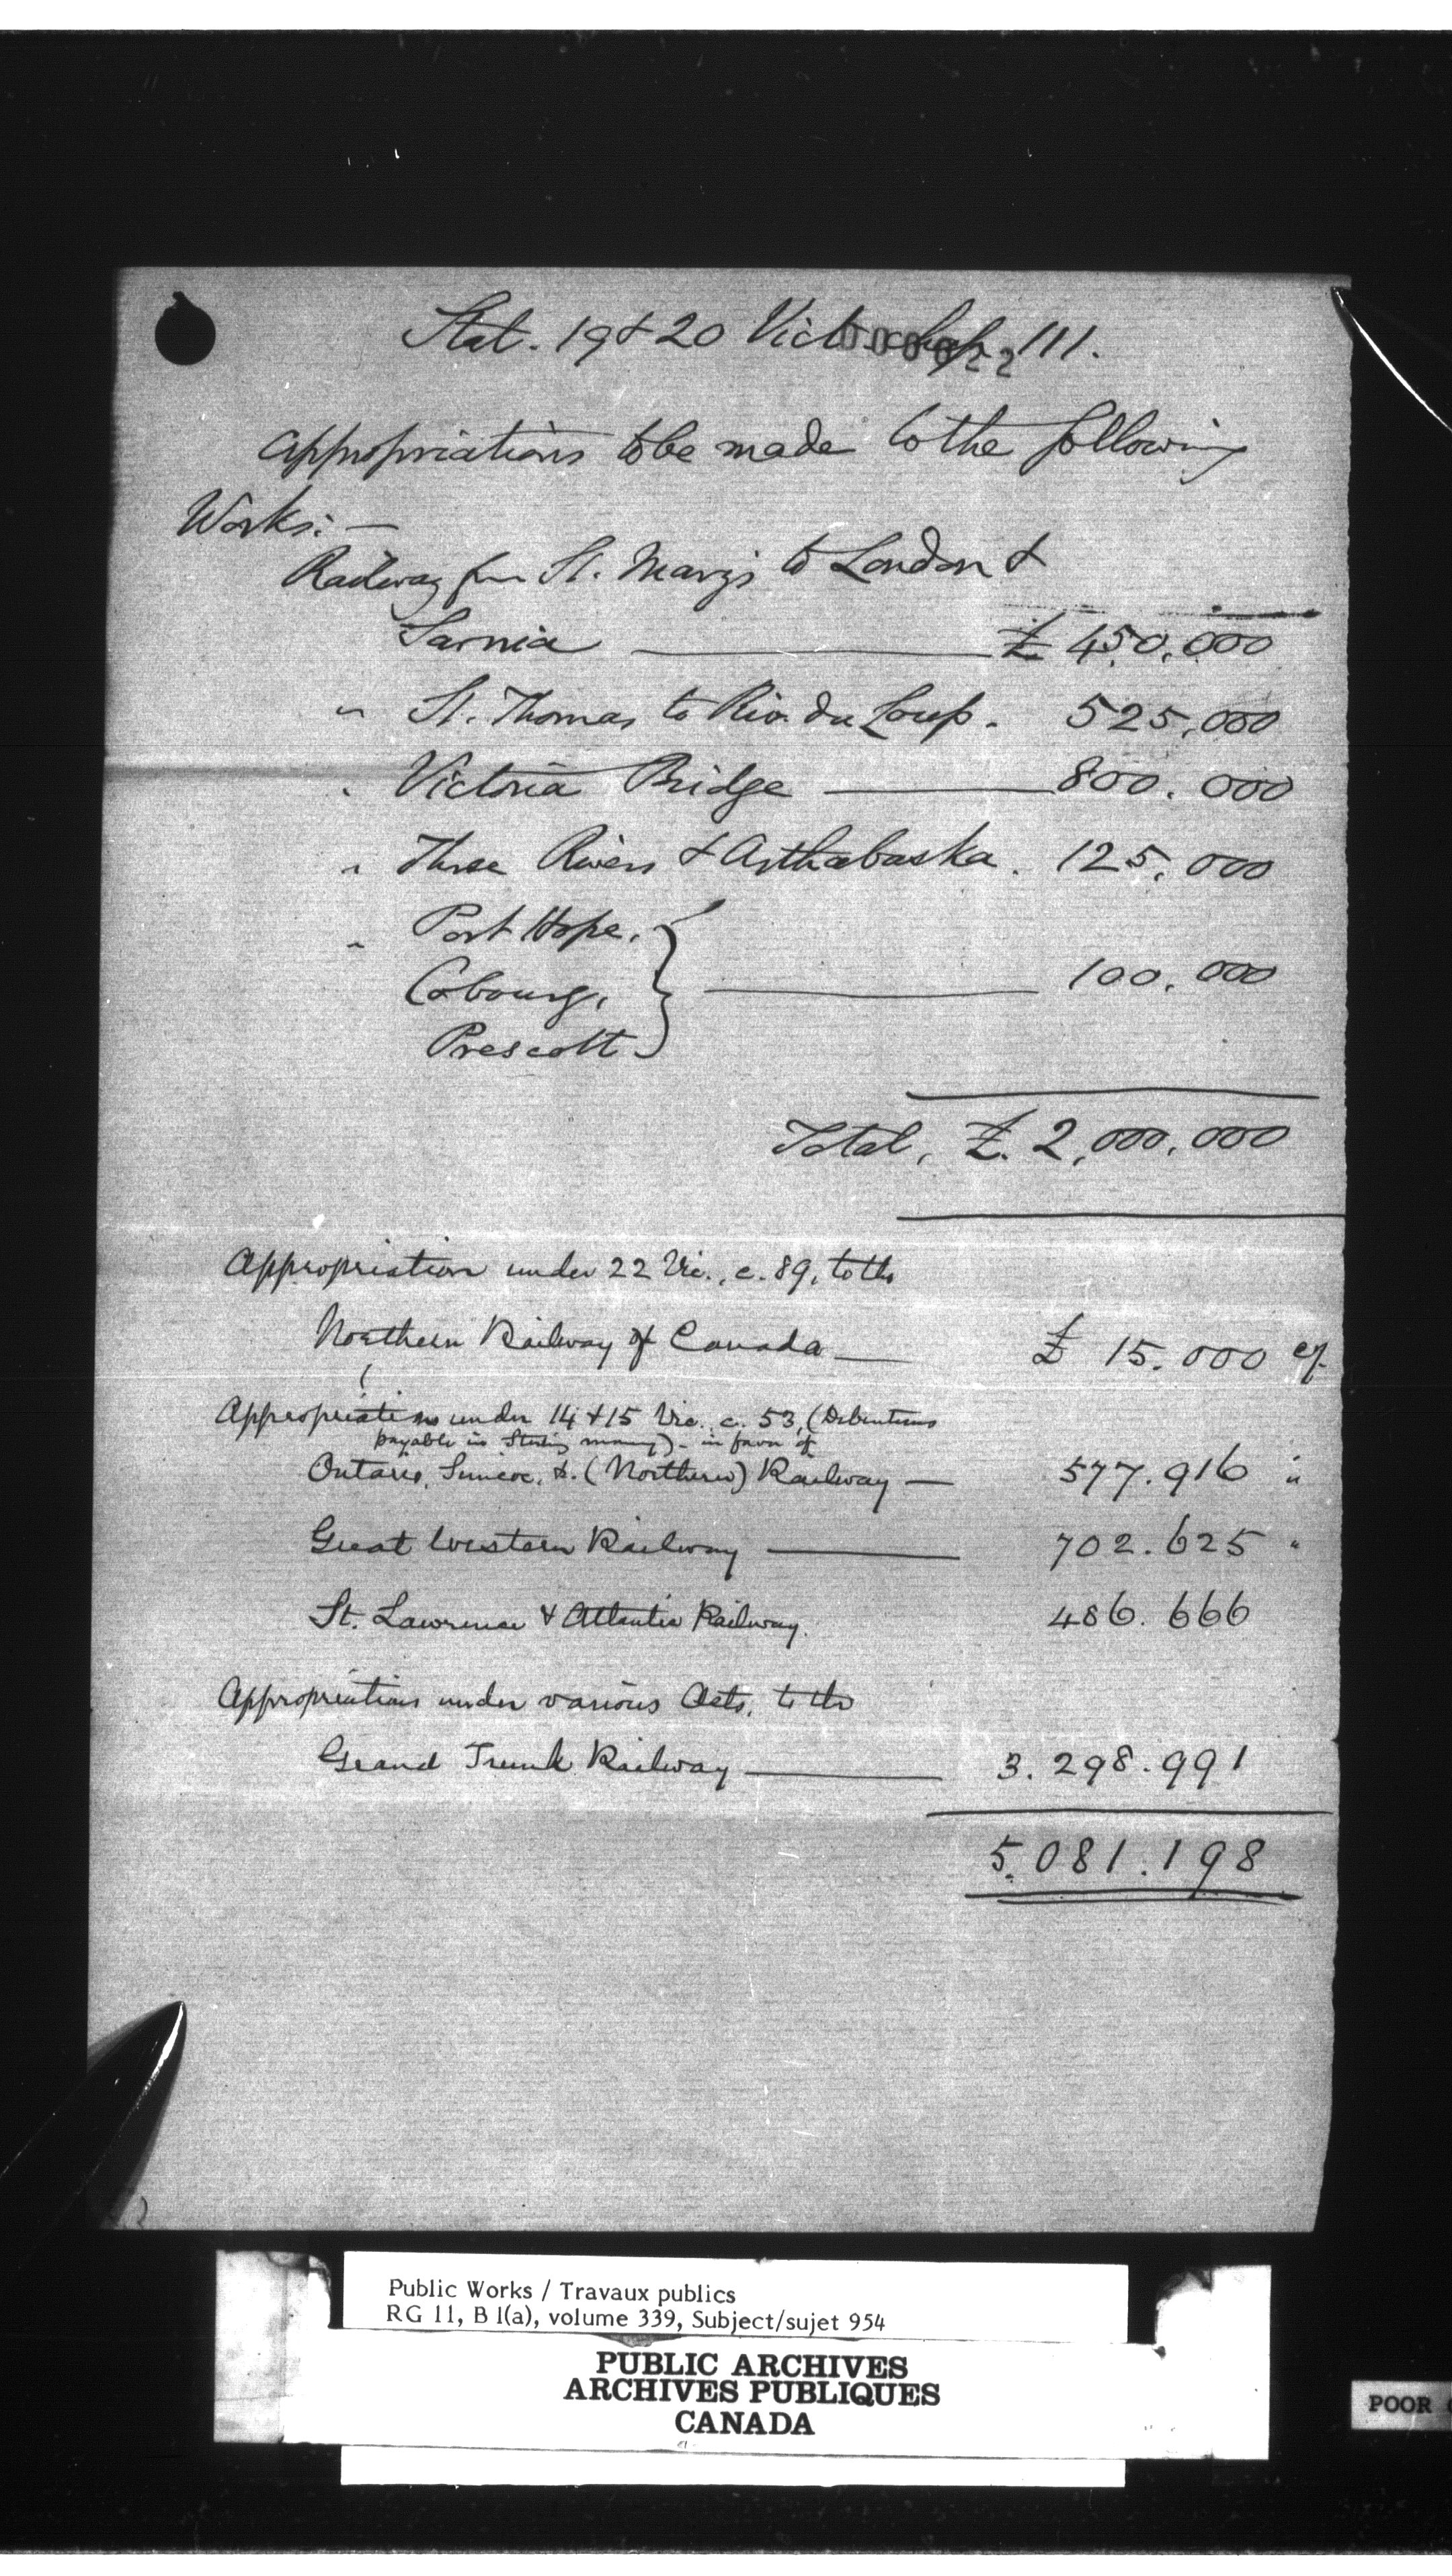 Stat. 19 & 20 Vict. chap. 111.
000022
Appropriations to be made to the following
Works: —
Railway from St. Mary's to London &
Sarnia £ 450,000
" St. Thomas to Riv. du Loup. 525,000
" Victoria Bridge 800.000
" Three Rivers & Arthabaska. 125,000
" Port Hope,
Cobourg, 100.000
Prescott
Total, £. 2,000,000
Appropriation under 22 Vic., c. 89, to the
Northern Railway of Canada — £ 15.000 cy.
Appropriations under 14 & 15 Vic. c. 53, (Debentures
payable in Sterling money) - in favor of
Ontario, Simcoe, &. (Northern) Railway — 577.916 "
Great Western Railway — 702.625 "
St. Lawrence & Atlantic Railway. 486.666
Appropriations under various Acts, to the
Grand Trunk Railway — 3.298.991
5.081.198
Public Works / Travaux publics
RG 11, B 1(a), volume 339, Subject/sujet 954
PUBLIC ARCHIVES
ARCHIVES PUBLIQUES
CANADA
POOR